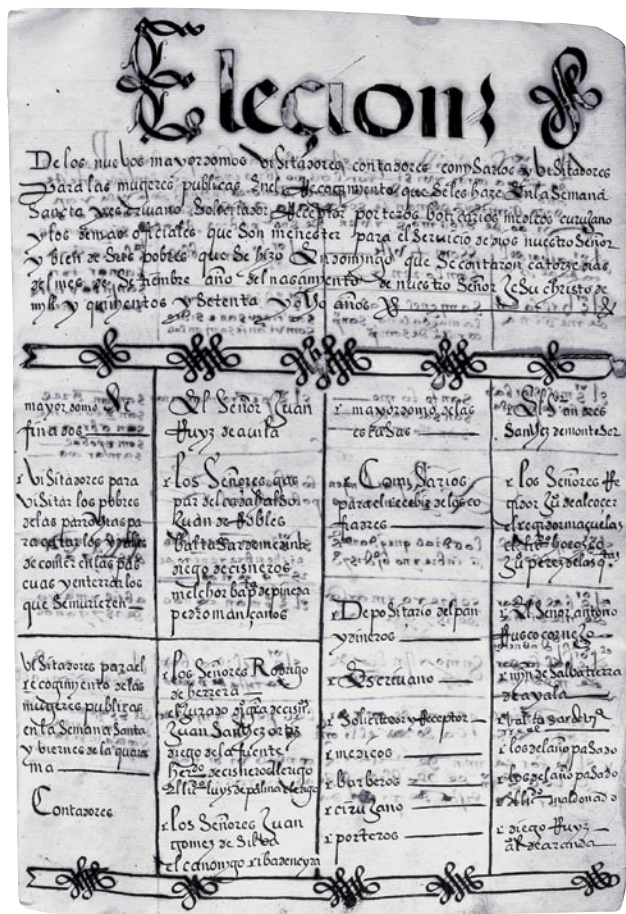 Elecion
De los nuebos mayordomos visitadores contadores comysarios y visitadores
para las mugeres publicas en el Recogimiento que se les haze en la semana
sancta y escrivano Solicitador Receptor porteros boticarios medicos curujano
y los demas officiales que son menester para el servicio de dios nuestro Señor
y bien de sus pobres que se hizo en domingo que se contaron catorze dias
del mes de setiembre año del nasçimiento de nuestro Señor Jesu christo de
mill y quinientos y setenta y años
mayordomo de
finados
El Señor Juan
Ruyz de avila
r mayordomo de las
estufas
r El Señor andres
Sanchez de monte
r visitadores para
visitar los pobres
de las parrochias pa
ra los pobres
de comer en las pas
cuas y enterrar los
que se murieren
r los Señores gas
par de
Juan de Robles
baltasar de
diego de cisneros
melchor bap de pineda
pedro mançanas
r Comisarios
para el recebir de los co
frades
r los Señores Re
gidor Ju de alcocer
el regidor
el
Ju perez de las
r Depositario del pan
y dineros
r El Señor antonio
suseo cornejo
visitadores para el
recogimiento de las
mugeres publicas
en la Semana Santa
y viernes de la quares
ma
r los Señores Rodrigo
de herrera
el Jurado de cisn
Juan Sanchez ortiz
diego de la fuente
her de cisneros clerigo
el li luys de palma clerigo
r Escrivano
r de Salbatierra
de ayala
r Solicitador y Receptor
r medicos
r los del año pasado
r barberos
r los del año pasado
r cirujano
r El li maldonado
r porteros
r diego Ruyz
al de aranda
Contadores
r los Señores Juan
gomez de Silva
el canonigo ribadeneyra